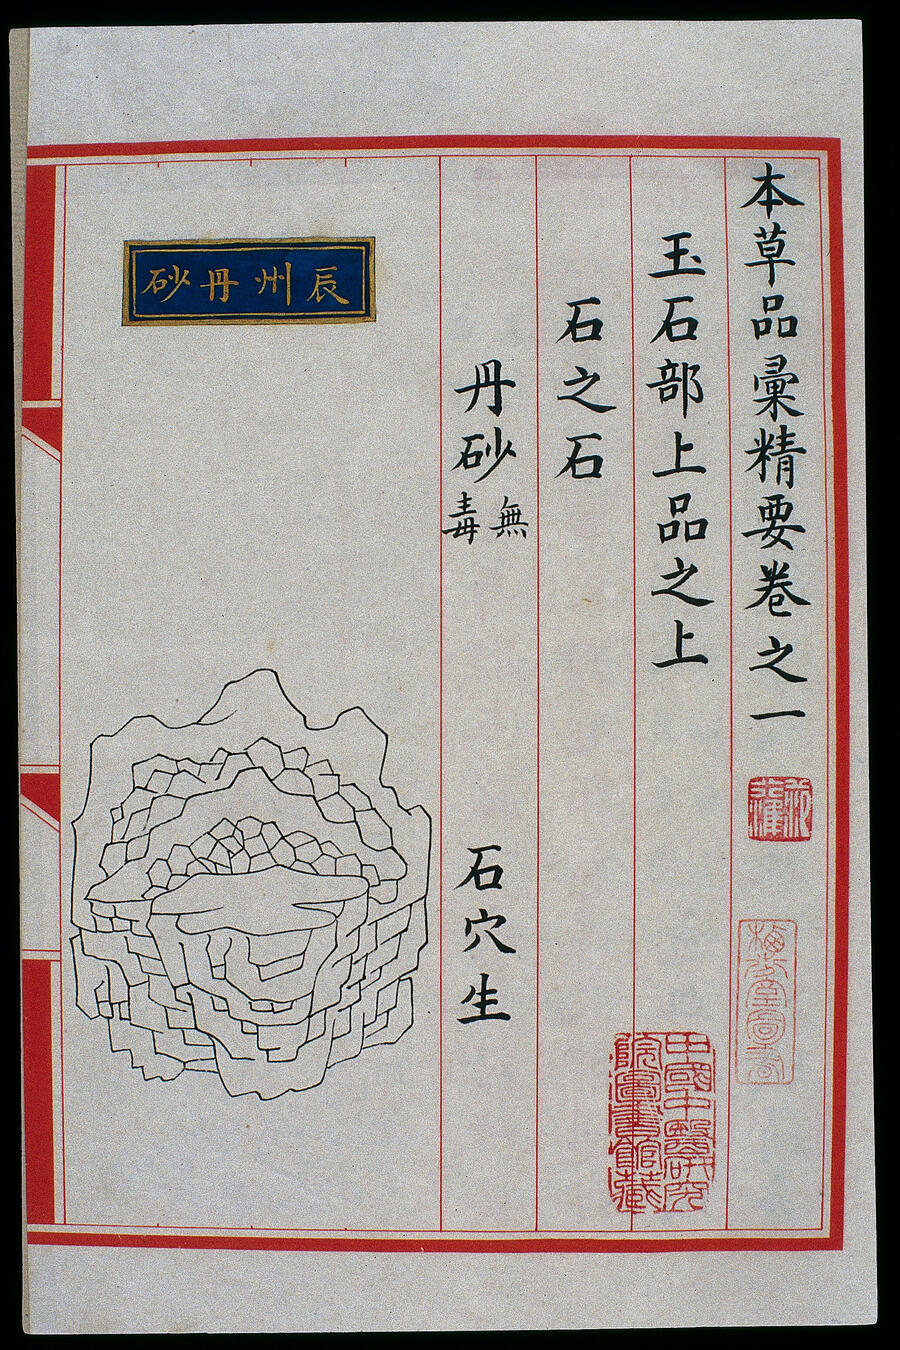 本草品彙精要卷之一
玉石部上品之上
石之石
丹砂 無毒 石穴生
辰州丹砂
中國中醫研究院圖書館藏